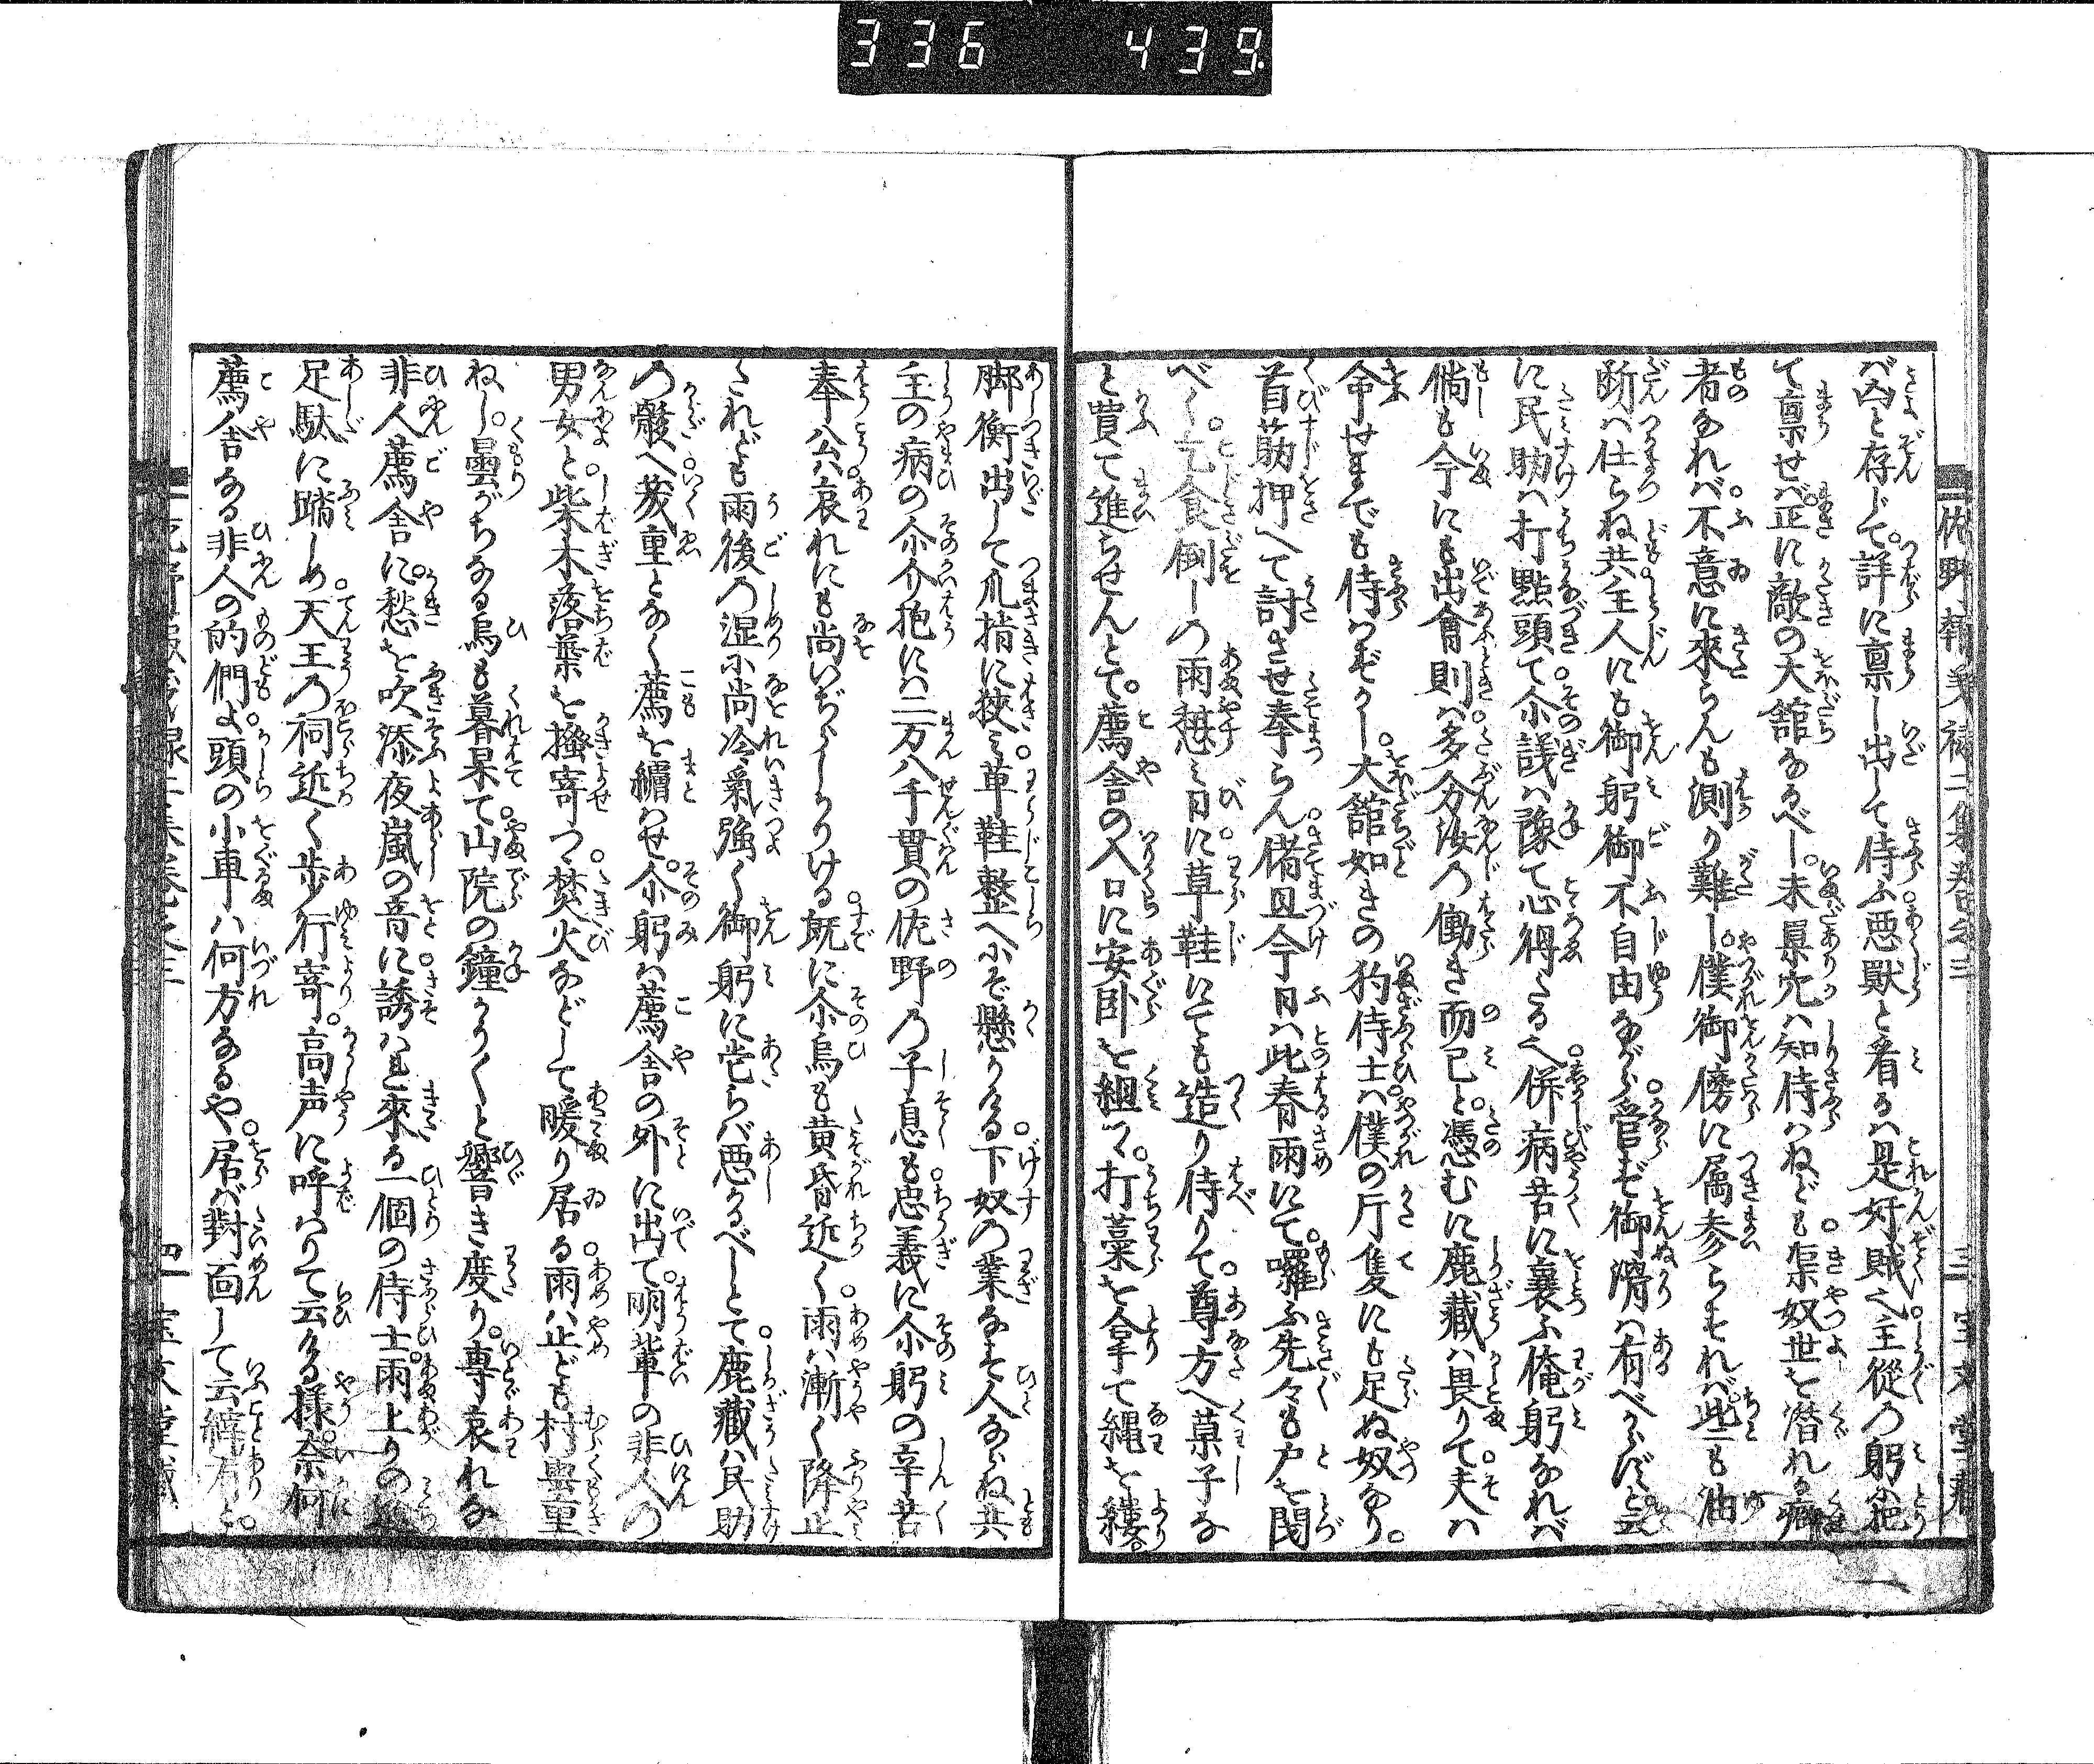 336 439
佐野報義録二集巻之三 三 宝文堂蔵
バ凶と存じて。詳に禀し出して侍ふ悪獣と看るハ是奸賊之主從の躬に把
て禀せバ。正に敵の大舘なるべし。未景穴ハ知侍ハねども。怎奴世を潜れる癖
者なれバ。不意に來らんも測り難し。僕御傍に属参らすれバ些も油
断ハ仕らね共主人にも御躬御不自由ながら。管ず御滑ハ有べからずと云
に民助ハ打點頭て。尒議ハ豫て心得たる之。併病苦に襄ふ俺躬なれバ
倘も今にも出會則ハ。多分汝の働き而已と。憑むに鹿藏ハ畏りて。夫ハ
命せまでも侍ハずかし。大舘如きの犳侍士ハ。僕の斤隻にも足ぬ奴なり。
首筋押へて討させ奉らん。偖且今日ハ此春雨にて。囉ふ先々も戸を閲
べく。乞食倒しの雨愁ミ日に。草鞋にても造り侍りて。尊方へ菓子な
と買て進らせんとて。薦舎の入口に安卧を組て。打藁を拿て縄を縷。
脚衡出して爪揹に挾ミ。草鞋整へにぞ懸りける。下奴の業なす人ならね共
主の病の尒介抱にハ二万八千貫の佐野の子息も。忠義に尒躬の辛苦
奉公ハ。哀れにも尚いぢらしかりける。既に尒烏も黄昏近く。雨ハ漸く降止
されども雨後の湿に尚冷氣強く。御躬に芒らバ悪かるべしとて。鹿藏ハ民助
の骸へ。幾重となく薦を纏ハせ。尒躬ハ薦舎の外に出て。明輩の非人の
男女と。柴木落葉を掻寄つゝ。焚火などして暖り居る。雨ハ止ども村雲重
ねし。曇がちなる烏も暮果て。山院の鐘かう〳〵と響き度り。専哀れな
非人薦舎に。愁を吹添夜嵐の音に。誘ハれ來る一個の侍士。雨上りの
足駄に踏しめ。天王の祠近く歩行寄。高声に呼ハりて云ける樣。奈何
薦舎なる非人の的們よ。頭の小車ハ何方なるや。居バ對面して云縡有と。
四 宝文堂蔵